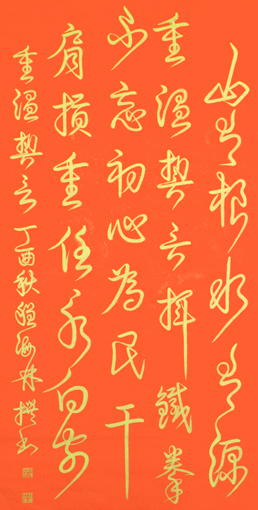 山有根水有源
重溫誓言揮鐵拳
不忘初心為民干
肩重任永向前
重溫誓言 丁酉秋 海林撰书